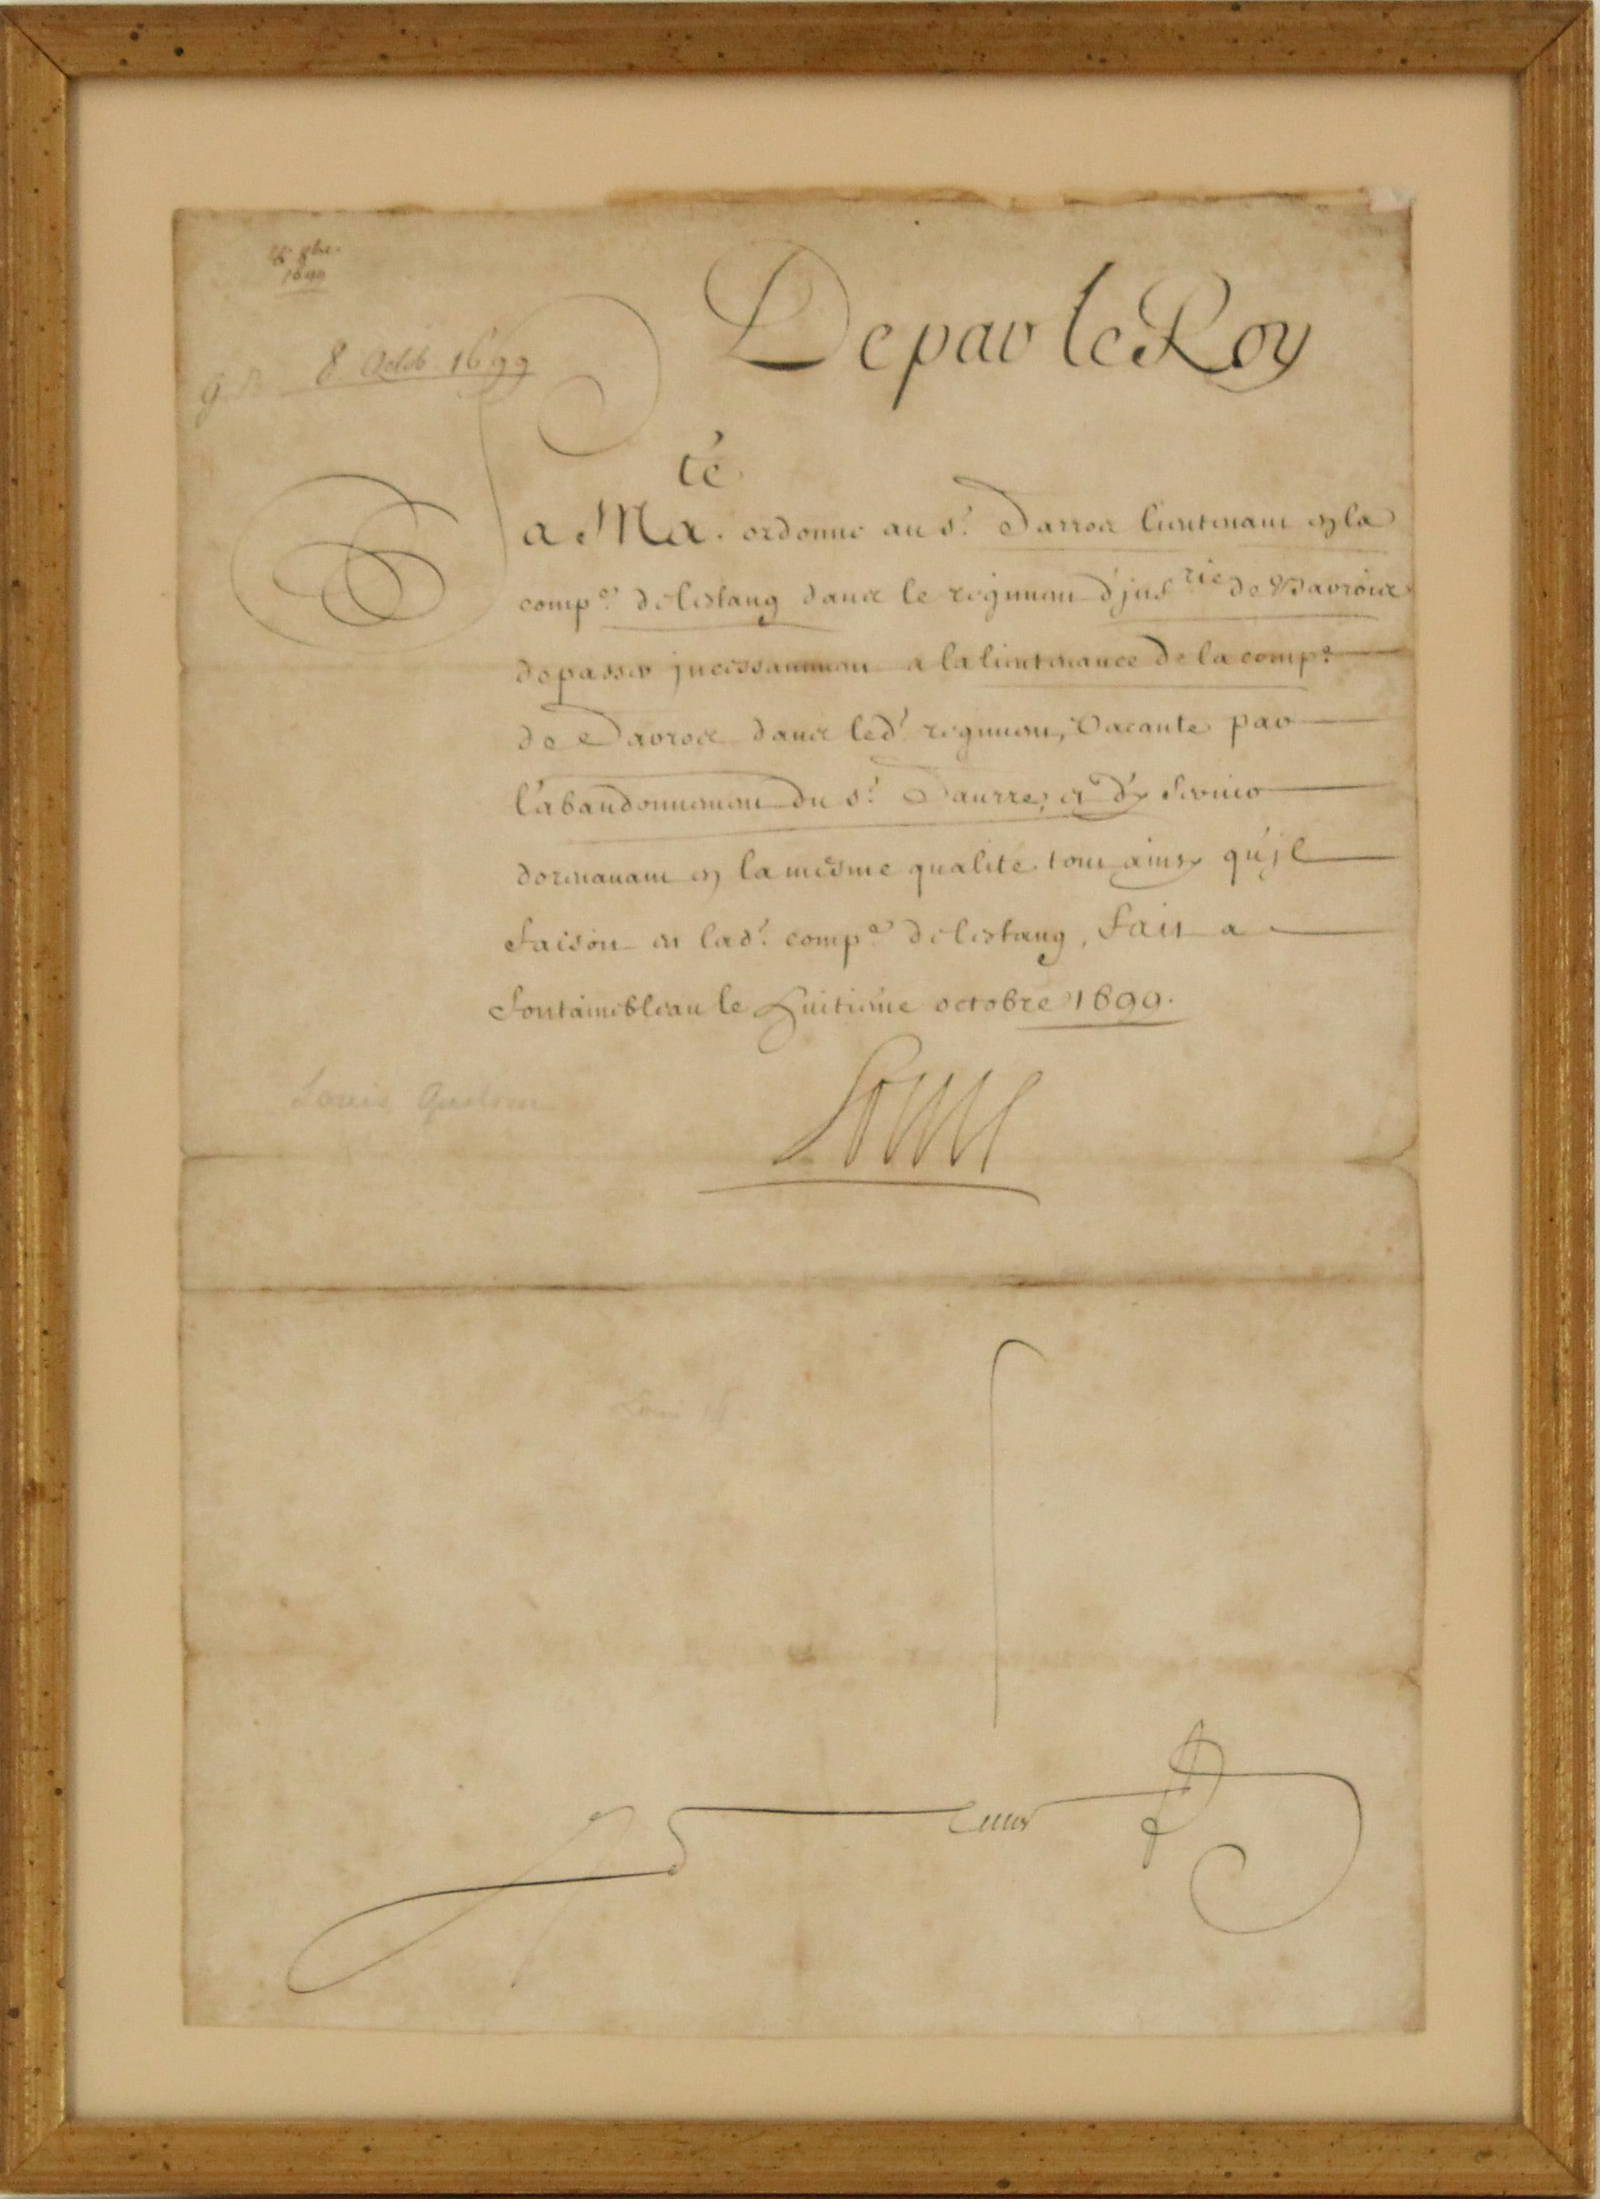 8bre.
1699
8 Octob. 1699
De par le Roy
té
Sa Ma. ordonne au Sr. Darros lieutenant en la
compe. delestang dans le regiment d'jnfrie de
de passer jncessamment a la lieutenance de la compe.
de dans led. regiment, Vacante par
l'abandonnement du Sr. Daurre, et d'y servir
dorenavant en la mesme qualité tout ainsy qu'jl
faisoit en lad. compe. delestang, Fait a
Fontainebleau le huitième octobre 1699.
Louis
Louis
Louis